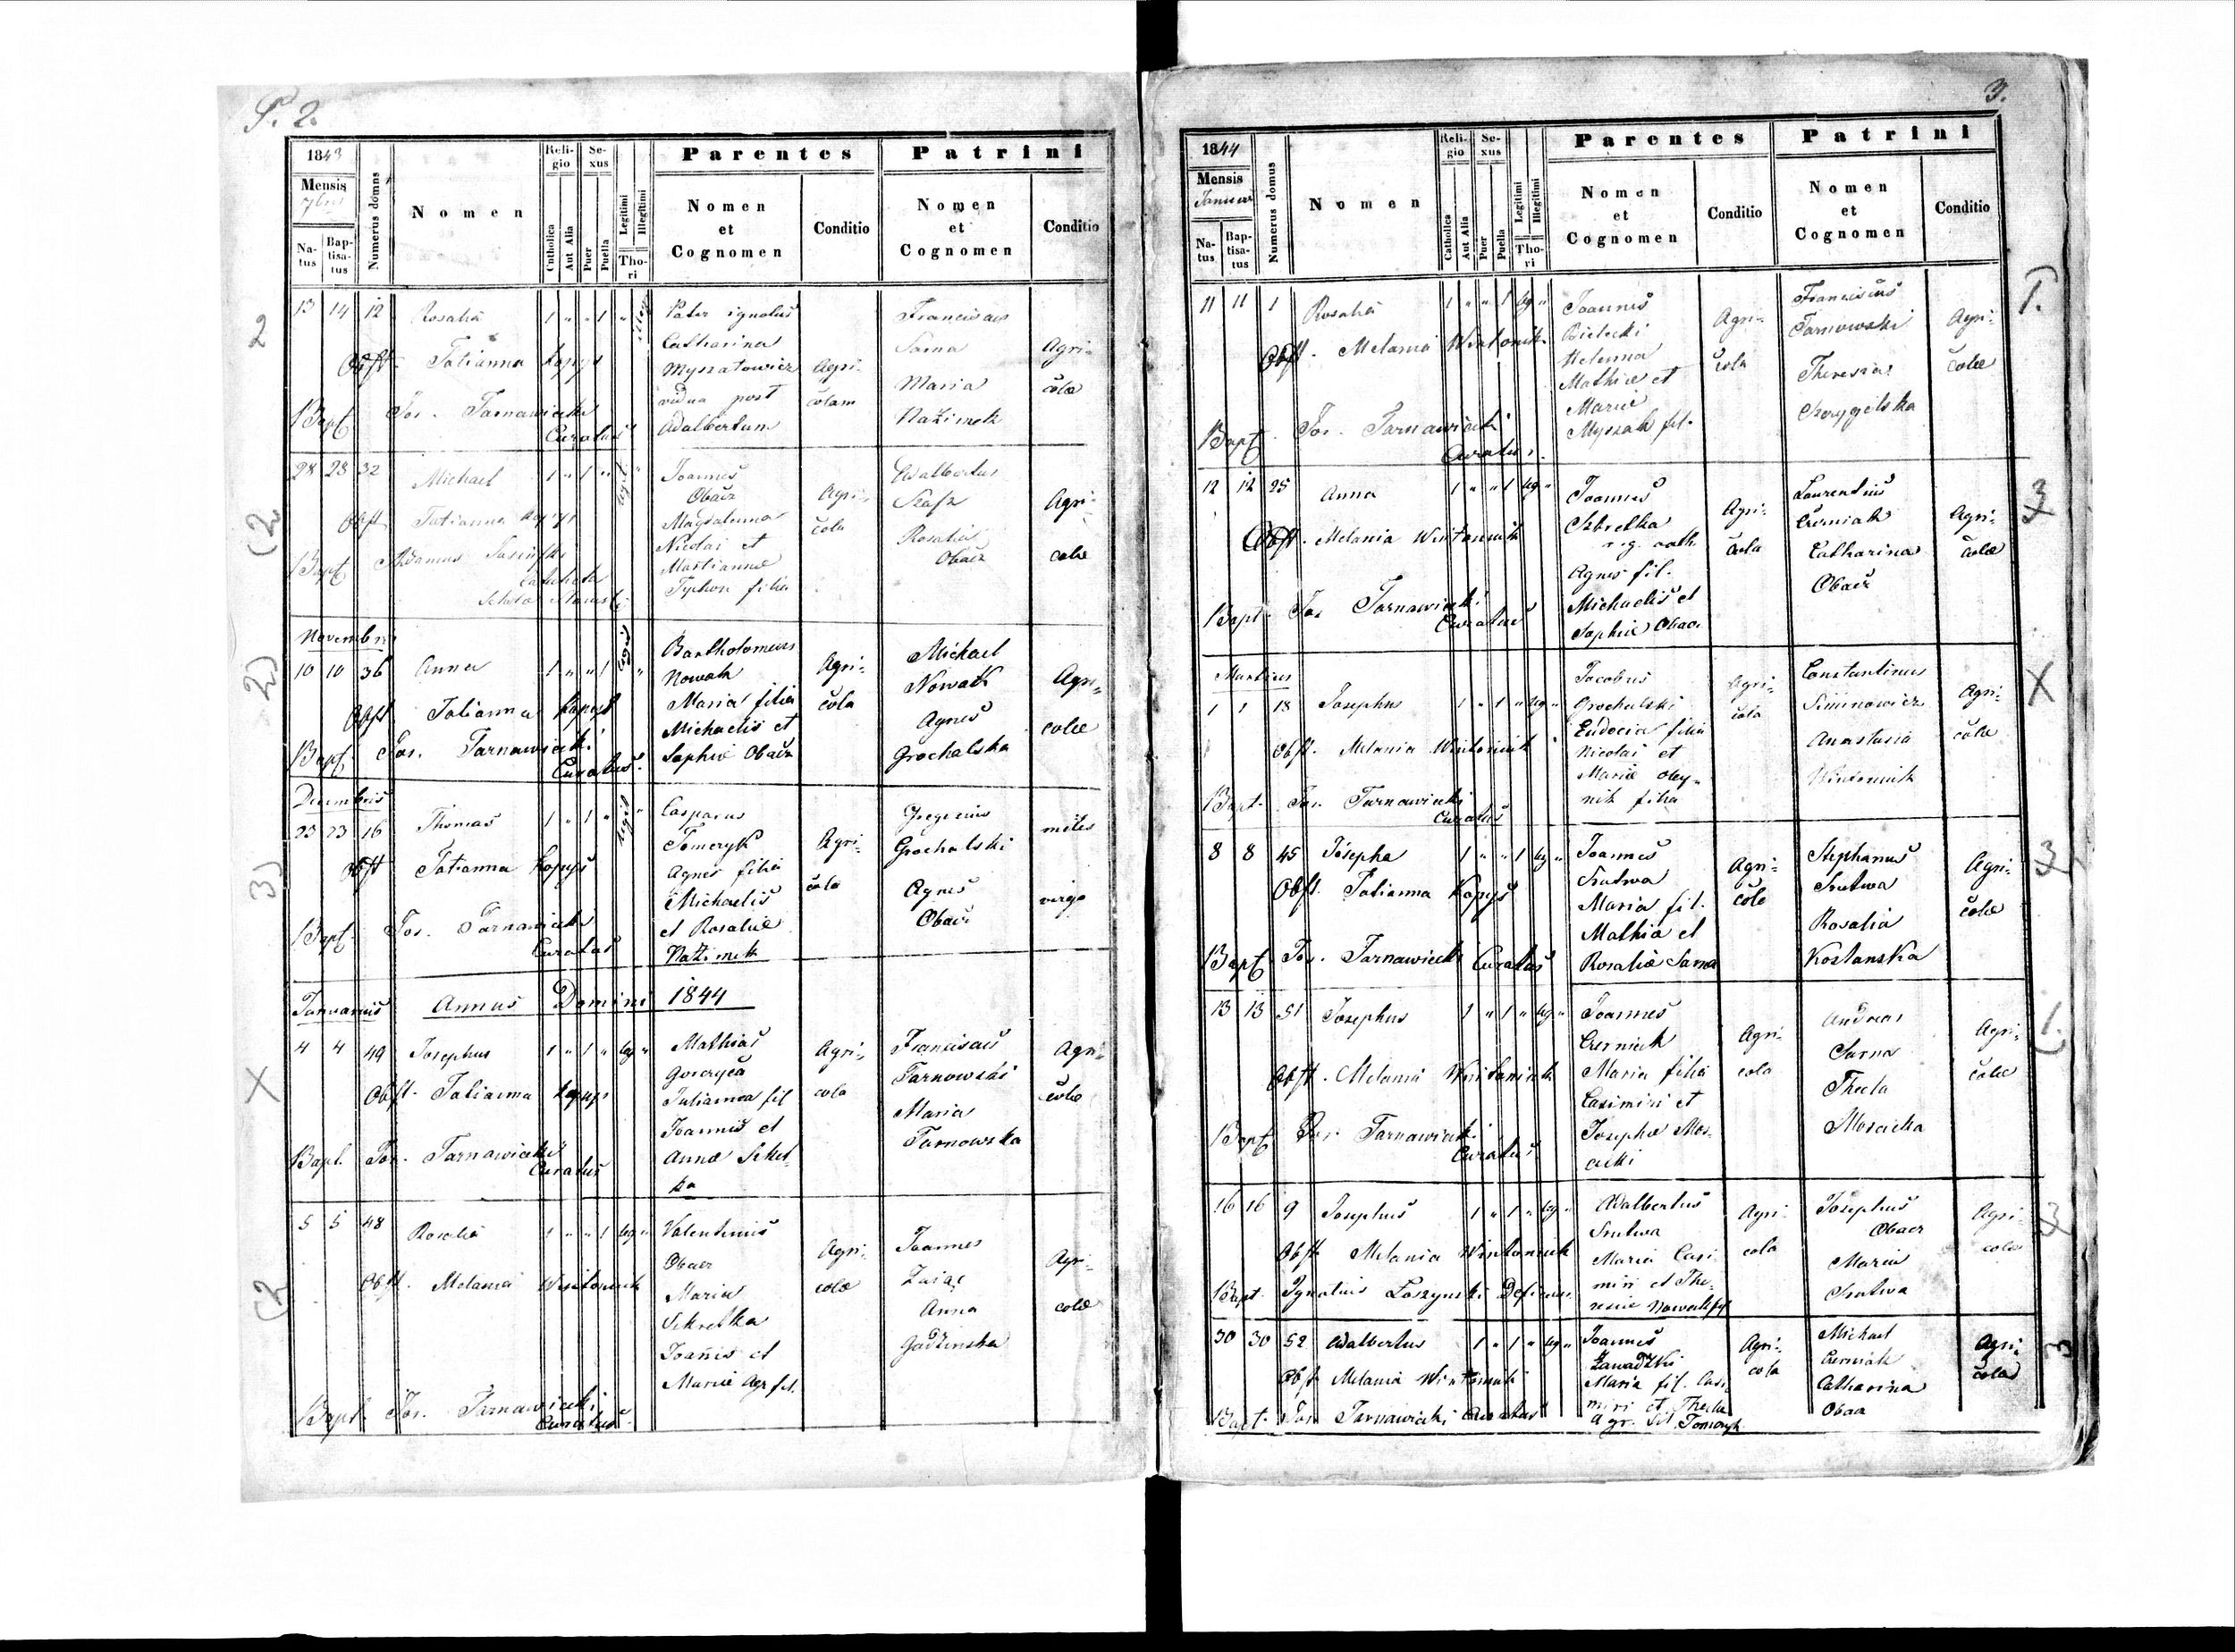 P. 2.
1843
Mensis
7bris
Natus
Baptisatus
Numerus domus
Nomen
Religio
Catholica
Aut Alia
Sexus
Puer
Puella
Legitimi
Illegitimi
Thori
Parentes
Nomen
et
Cognomen
Conditio
Patrini
Nomen
et
Cognomen
Conditio
13 14 12 Rosalia 1 " " 1 "
Obst. Tatianna Kopys
Bapt. Jos. Tarnawiecki
Curatus
Pater ignotus
Catharina
vidua post
Adalbertum
Agri-
colam
Franciscus
Sarna
Maria
Nażimek
Agri-
colæ
28 28 32 Michael 1 " 1 " legit "
Obst. Tatianna Kopys
Bapt. Adamus
Joannes
Obacz
Magdalena
Nicolai et
Marianna
Typhon filia
Agri-
cola
Adalbertus
Szafr
Rosalia
Obacz
Agri-
colæ
Novembris
10 10 36 Anna 1 " " 1 legit "
Obst Tatianna Kopys
Bapt. Jos. Tarnawiecki
Curatus.
Bartholomeus
Nowak
Maria filia
Michaelis et
Sophiæ Obacz
Agri-
cola
Michael
Nowak
Agnes
Grochalska
Agri-
colæ
Decembris
23 23 16 Thomas 1 " 1 " legit "
Obst Tatianna Kopys
Bapt. Jos. Tarnawiecki
Curatus
Casparus
Tomeryk
Agnes filia
Michaelis
et Rosaliæ
Nażimek
Agri-
cola
Gregorius
Grochalski
Agnes
Obacz
miles
virgo
Januarius Annus Domini 1844
4 4 49 Josephus 1 " 1 " leg "
Obst. Tatianna Kopys
Bapt. Jos. Tarnawiecki
Curatus
Mathias
Julianna fil
Joannis et
Annæ Sekret-
ka
Agri-
cola
Franciscus
Tarnowski
Maria
Tarnowska
Agri-
colæ
5 5 48 Rosalia 1 " " 1 leg "
Obst. Melania Wintoniak
Bapt. Jos. Tarnawiecki
Curatus.
Valentinus
Obacz
Maria
Sekretka
Joañis et
Mariæ Agr fil.
Agri-
colæ
Joannes
Zając
Anna
Gadzinska
Agri-
colæ
3.
1844
Mensis
Januar
Natus
Baptisatus
Numerus domus
Nomen
Religio
Catholica
Aut Alia
Sexus
Puer
Puella
Legitimi
Illegitimi
Thori
Parentes
Nomen
et
Cognomen
Conditio
Patrini
Nomen
et
Cognomen
Conditio
11 11 1 Rosalia 1 " " 1 leg "
Obst. Melania Wintoniak
Bapt. Jos. Tarnawiecki
Curatus.
Joannes
Bielecki
Helenna
Mathiæ et
Mariæ
Myszak fil.
Agri-
cola
Franciscus
Tarnowski
Theresia
Agri-
colæ
12 12 25 Anna 1 " " 1 leg "
Obst. Melania Wintoniak
Bapt. Jos. Tarnawiecki
Curatus
Joannes
Agnes fil.
Michaelis et
Sophiæ Obacz
Agri-
cola
Laurentius
Czerniak
Catharina
Obacz
Agri-
colæ
Martius
1 1 18 Josephus 1 " 1 " leg "
Obst. Melania Wintoniak
Bapt. Jos. Tarnawiecki
Curatus
Jacobus
Grochalski
Eudocia filia
Nicolai et
Mariæ Oley-
nik filia
Agri-
cola
Constantinus
Siminowicz
Anastasia
Wintoniak
Agri-
colæ
8 8 45 Josepha 1 " " 1 leg "
Obst. Tatianna Kopys
Bapt. Jos. Tarnawiecki Curatus
Joannes
Srutwa
Maria fil.
Mathia et
Rosaliæ Sarna
Agri-
colæ
Stephanus
Srutwa
Rosalia
Kostanska
Agri-
colæ
13 13 51 Josephus 1 " 1 " leg "
Obst. Melania Wintoniak
Bapt. Jos. Tarnawiecki
Curatus
Joannes
Czerniak
Maria filia
Casimiri et
Josephæ Mos-
cicki
Agri-
cola
Andreas
Sarna
Thecla
Moscicka
Agri-
colæ
16 16 9 Josephus 1 " 1 " leg "
Obst. Melania Wintoniak
Bapt. Ignatius Łoszynski
Adalbertus
Srutwa
Maria Casi-
miri et The-
resiæ Nowak fil
Agri-
cola
Josephus
Obacz
Maria
Srutwa
Agri-
colæ
30 30 52 Adalbertus 1 " 1 " leg "
Obst Melania Wintoniak
Bapt. Jos. Tarnawiecki Curatus
Joannes
Zawadzki
Maria fil. Casi-
miri et Thecla
agr. fil Tomeryk
Agri-
cola
Michael
Czerniak
Catharina
Obacz
Agri-
colæ